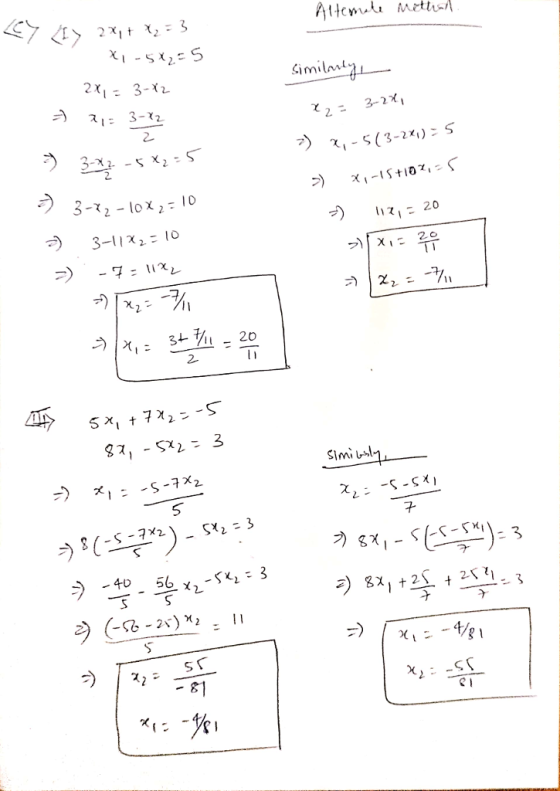 <C> <I> 2x₁ + x₂ = 3
x₁ - 5x₂ = 5
2x₁ = 3-x₂
=) x₁ = (3-x₂)/2
=) (3-x₂)/2 - 5x₂ = 5
=) 3-x₂-10x₂ = 10
=) 3-11x₂ = 10
=) -7 = 11x₂
=) x₂ = -7/11
=) x₁ = (3+7/11)/2 = 20/11
Alternate Method
Similarly,
x₂ = 3-2x₁
=) x₁-5(3-2x₁) = 5
=) x₁-15+10x₁ = 5
=) 11x₁ = 20
=) x₁ = 20/11
=) x₂ = -7/11
<III> 5x₁ + 7x₂ = -5
8x₁ - 5x₂ = 3
=) x₁ = (-5-7x₂)/5
=) 8((-5-7x₂)/5) - 5x₂ = 3
=) -40/5 - 56/5 x₂ - 5x₂ = 3
=) (-56-25)x₂/5 = 11
=) x₂ = 55/-81
x₁ = -4/81
Similarly,
x₂ = (-5-5x₁)/7
=) 8x₁ - 5((-5-5x₁)/7) = 3
=) 8x₁ + 25/7 + 25x₁/7 = 3
=) x₁ = -4/81
x₂ = -55/81